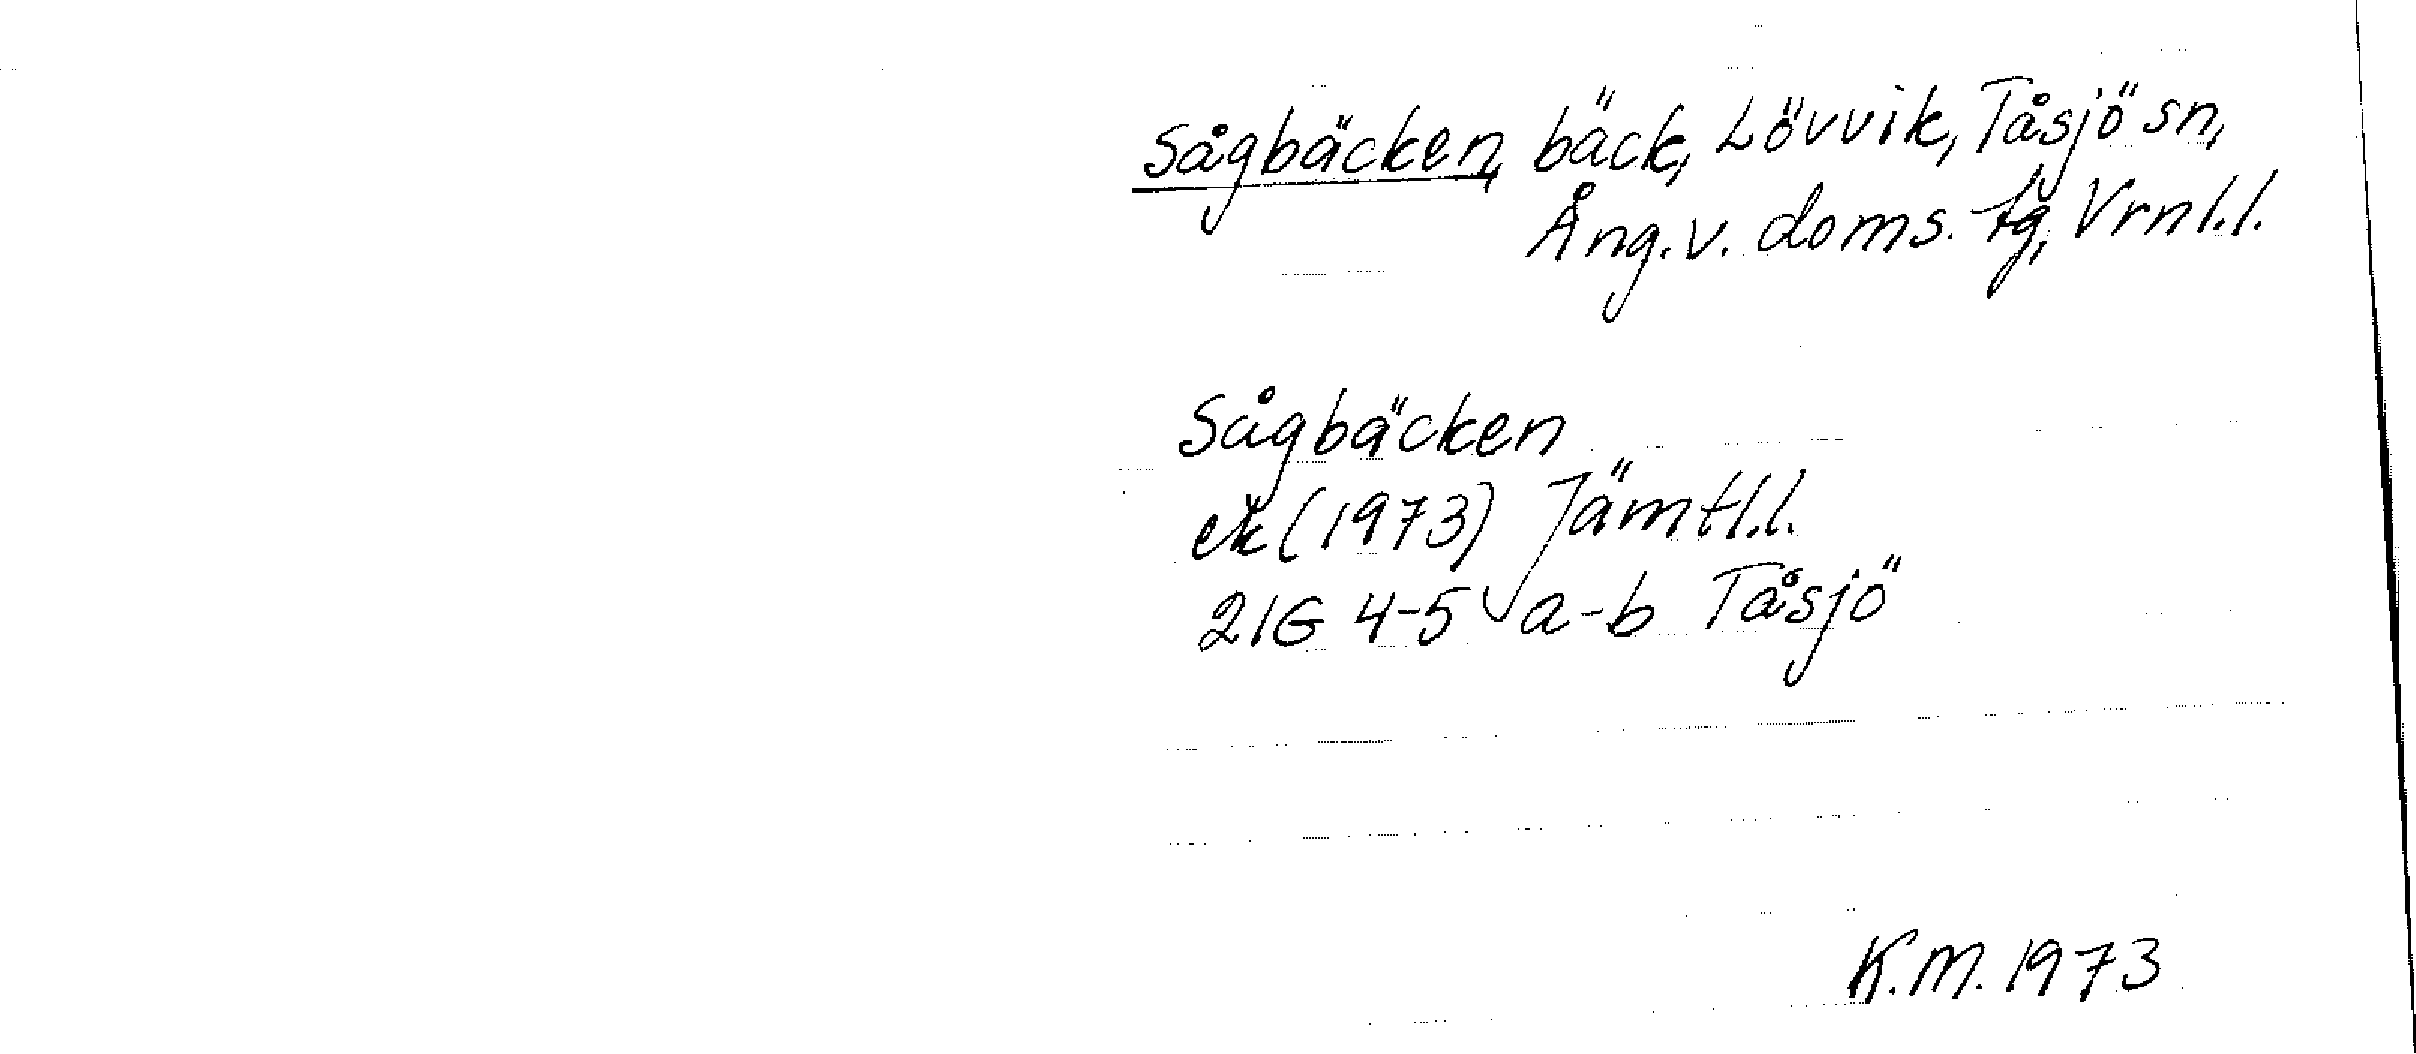 Sågbäcken, bäck, Lövvik, Tåsjö sn,
Ång. v. doms. tg, Vrnl.l.
Sågbäcken
ek (1973) Jämtl.l.
21G 4-5 a-b Tåsjö
K.M. 1973